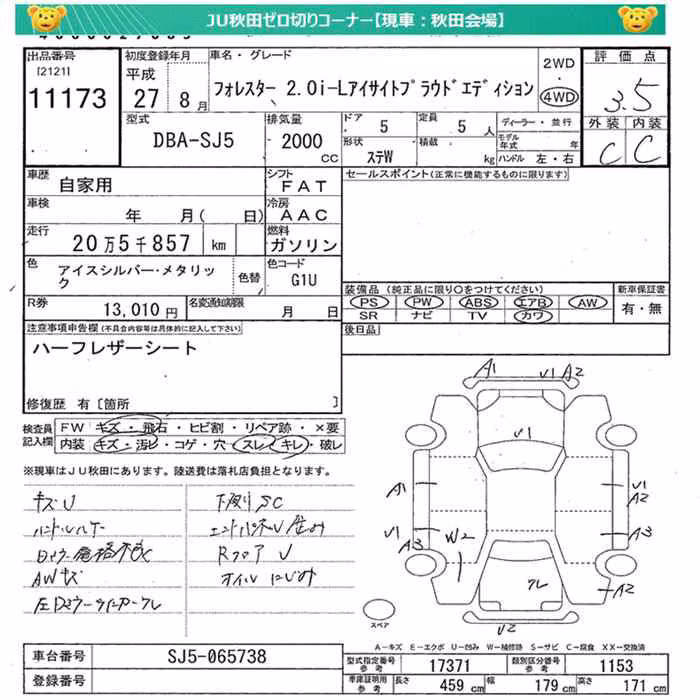 JU秋田ゼロ切りコーナー【現車：秋田会場】
出品番号
[2121]
11173
初度登録年月
平成
27 8月
車名・グレード
フォレスター 2.0i-Lアイサイトプラウドエディション
2WD
・
4WD
評価点
3.5
外装 内装
C C
型式
DBA-SJ5
排気量
2000
CC
ドア
5
定員
5 人
形状
ステW
積載
kg
ディーラー・並行
モデル年式 年
ハンドル 左・右
車歴
自家用
シフト
FAT
セールスポイント(正常に機能するものに限ります)
車検
年 月( 日)
冷房
AAC
走行
20万5千857 km
燃料
ガソリン
色
アイスシルバー・メタリック
色替
色コード
G1U
装備品 (純正品に限り○をつけてください)
新車保証書
PS PW ABS エアB AW
SR ナビ TV カワ
有・無
R券
13,010円
名変通知期限
月 日
後日品
注意事項申告欄(不具合内容等は具体的に記入して下さい)
ハーフレザーシート
修復歴 有［箇所 ］
検査員
記入欄
FW キズ・飛石・ヒビ割・リペア跡・×要
内装 キズ・汚レ・コゲ・穴・スレ・キレ・破レ
※現車はJU秋田にあります。陸送費は落札店負担となります。
キズU
下廻りSC
AWキズ
RフロアU
オイルにじみ
A1
U1 A2
U1
A1
U1
A2
U1
A3
W2
A3
A2
クレ
U2
スペア
A－キズ E－エクボ U－凹み W－補修跡 S－サビ C－腐食 XX－交換済
車台番号
SJ5-065738
登録番号
型式指定番号
参考
17371
類別区分番号
参考
1153
車庫証明用
参考
長さ
459 cm
幅
179 cm
高さ
171 cm